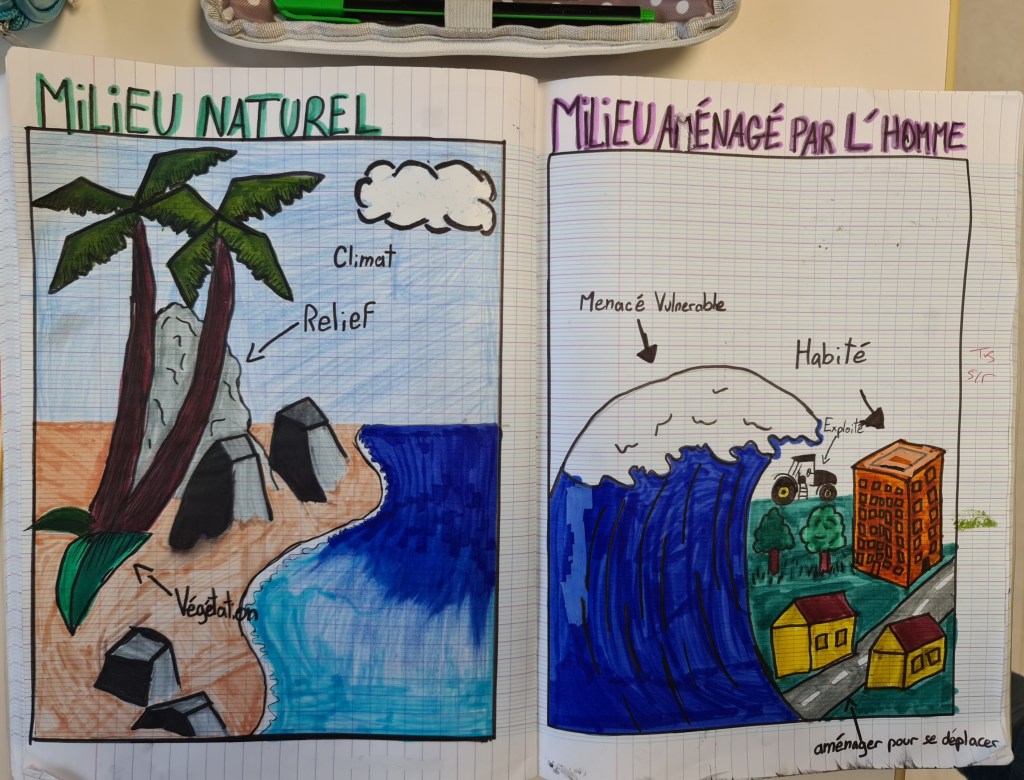 MiLiEU NATUREL
Climat
Relief
Végétation
MiLiEU AMÉNAGÉ PAR L'HOMME
Menacé Vulnerable
Habité
Exploité
aménager pour se déplacer